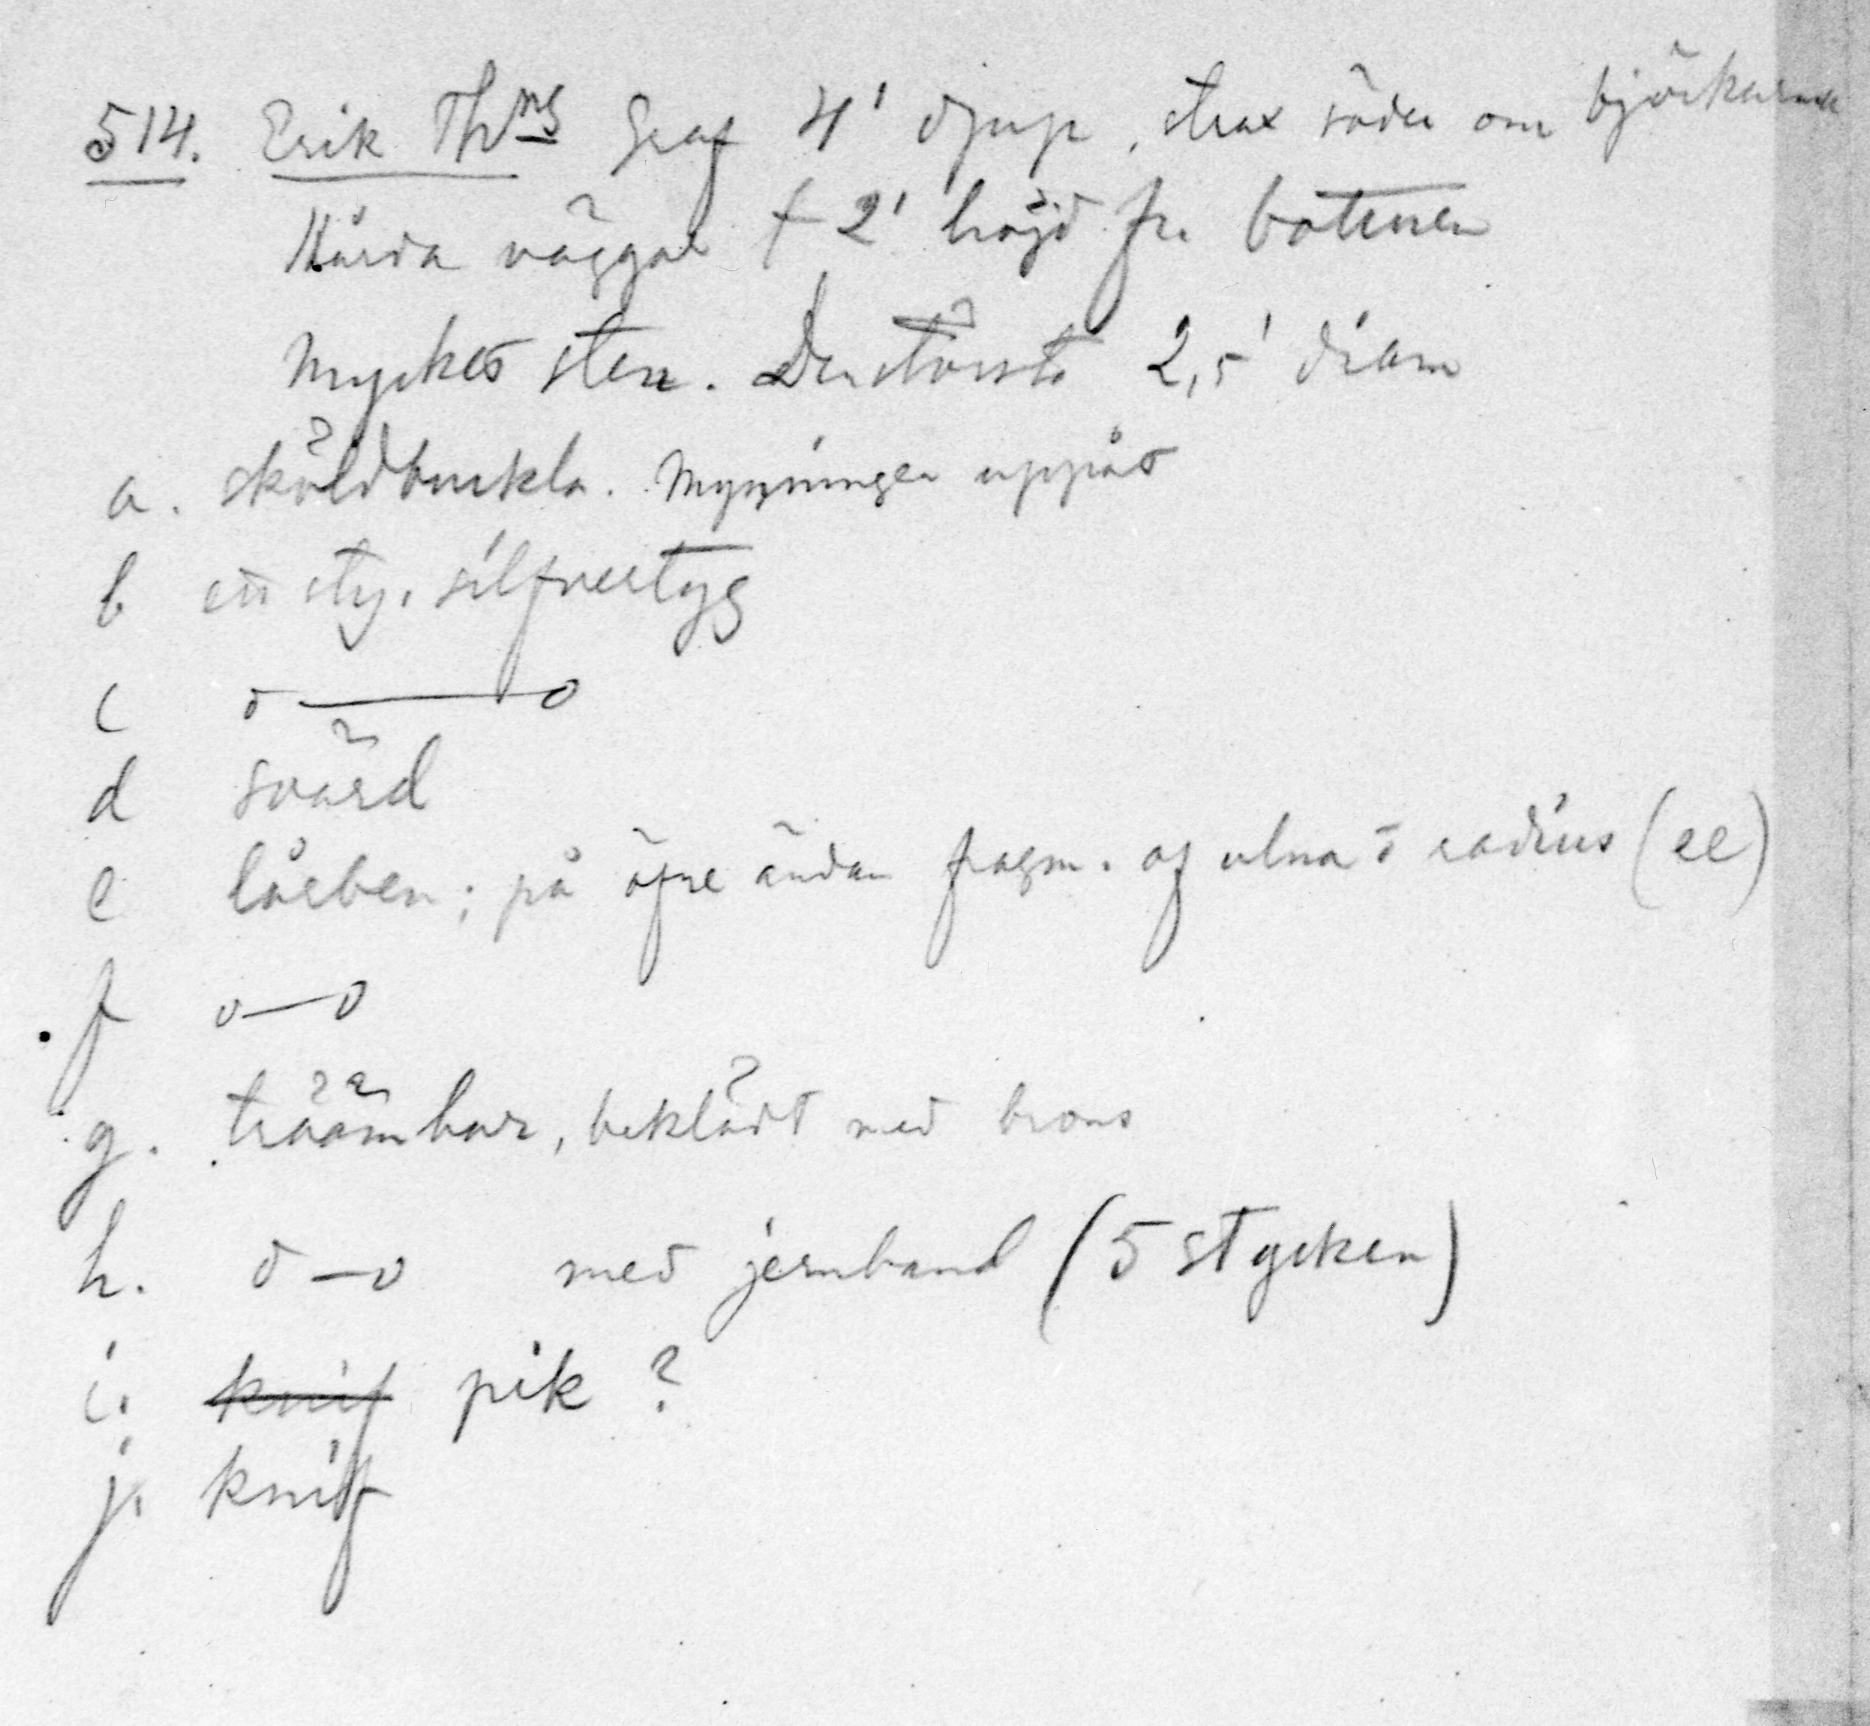 514. Erik Thng Graf 4' djup, strax söder om björkarna
Hårda väggar t 2' höjd fr. bottnen
Mycket sten. Den största 2,5' diam
a. sköldbuckla. Mynningen uppåt
b ett sty. silfvertyg
c o——o
d svärd
e lårben; på öfre ändan fragm. af ulna o radius (ee)
f o—o
g. träämbar, beklädt med brons
h. o—o med jernband (5 stycken)
i. knif pik ?
j. knif